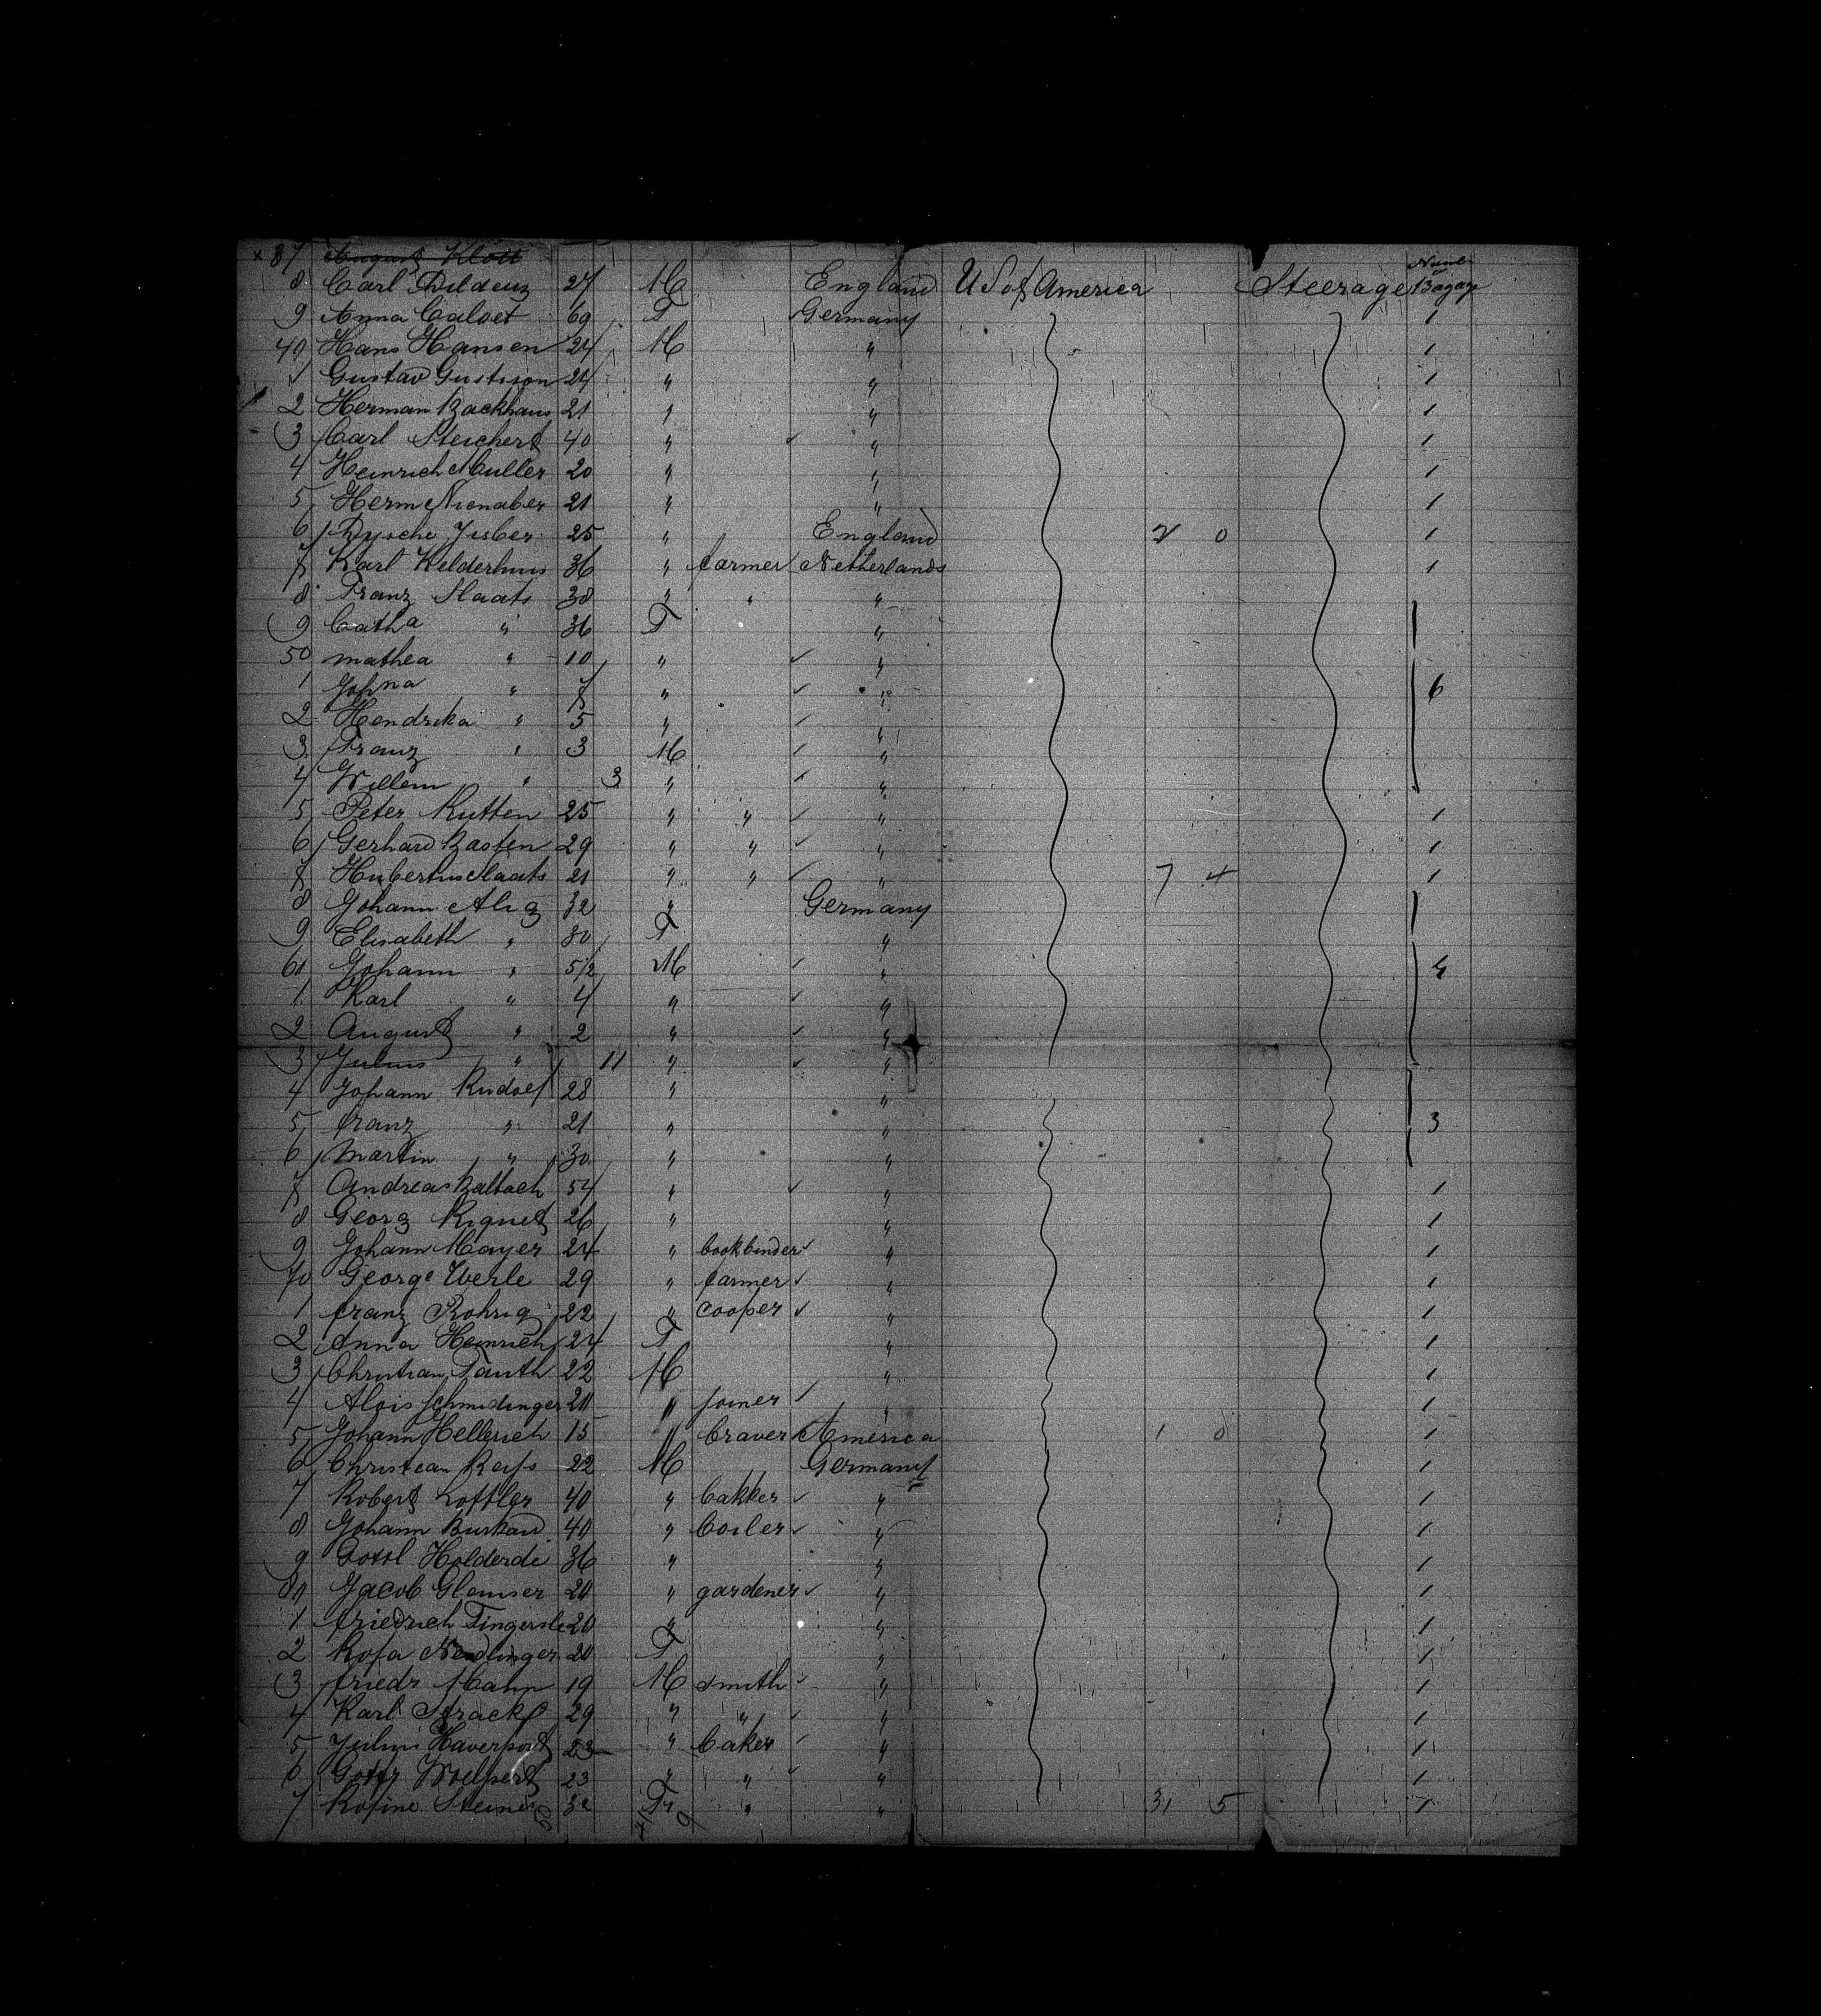 x 87 August Klott
Numb
8 Carl 27 M England U S of America Steerage Bagage
9 Anna Calvet 69 F Germany 1
40 Hans Hansen 24 M " 1
1 Gustav Gustison 24 " " 1
2 Herman Backhaus 21 " " 1
3 Carl Steichert 40 " " 1
4 Heinrich Muller 20 " " 1
5 Herm Nienaber 21 " " 1
6 25 " England 2 0 1
7 Karl Kelderhuis 36 " farmer Netherlands 1
8 Franz Slaats 38 " " "
9 Catha " 36 F "
50 mathea " 10 " "
1 Johna " 7 " " 6
2 Hendrika " 5 " "
3 Franz " 3 M "
4 Willem " 3 " "
5 Peter Rutten 25 " " " 1
6 Gerhard Basten 29 " " " 1
7 Hubertus Slaats 21 " " " 7 4 1
8 Johann Alig 32 " Germany
9 Elisabeth " 30 F "
60 Johann " 5 1/2 M " 4
1 Karl " 4 " "
2 August " 2 " "
3 Julius " 11 " "
4 Johann Rudolf 28 " "
5 franz " 21 " " 3
6 Martin " 30 " "
7 Andreas Baltach 54 " " 1
8 Georg Riquet 26 " " 1
9 Johann Mayer 24 " bookbinder " 1
70 George Uberle 29 " farmer " 1
1 franz Rohrig 22 " cooper " 1
2 Anna Heinrich 24 F " 1
3 Christian Fauth 22 M " 1
4 Alois Schmidinger 20 " joiner " 1
5 Johann Hellerich 15 " braver America 1 0 1
6 Christian 22 M Germany 1
7 Robert Loffler 40 " bakker " 1
8 Johann Burkard 40 " boiler " 1
9 Gottl Holderdi 36 " " 1
80 Jacob Glemser 20 " gardener " 1
1 friedrich Fingersle 20 " " 1
2 Rosa Nendlinger 20 F " 1
3 friedr Hahn 19 M smith " 1
4 Karl Strack 29 " " " 1
5 Julius Haverport 23 " baker " 1
6 Wolpert 23 " " " 1
7 Rosine Steiner 32 F " " 31 5 1